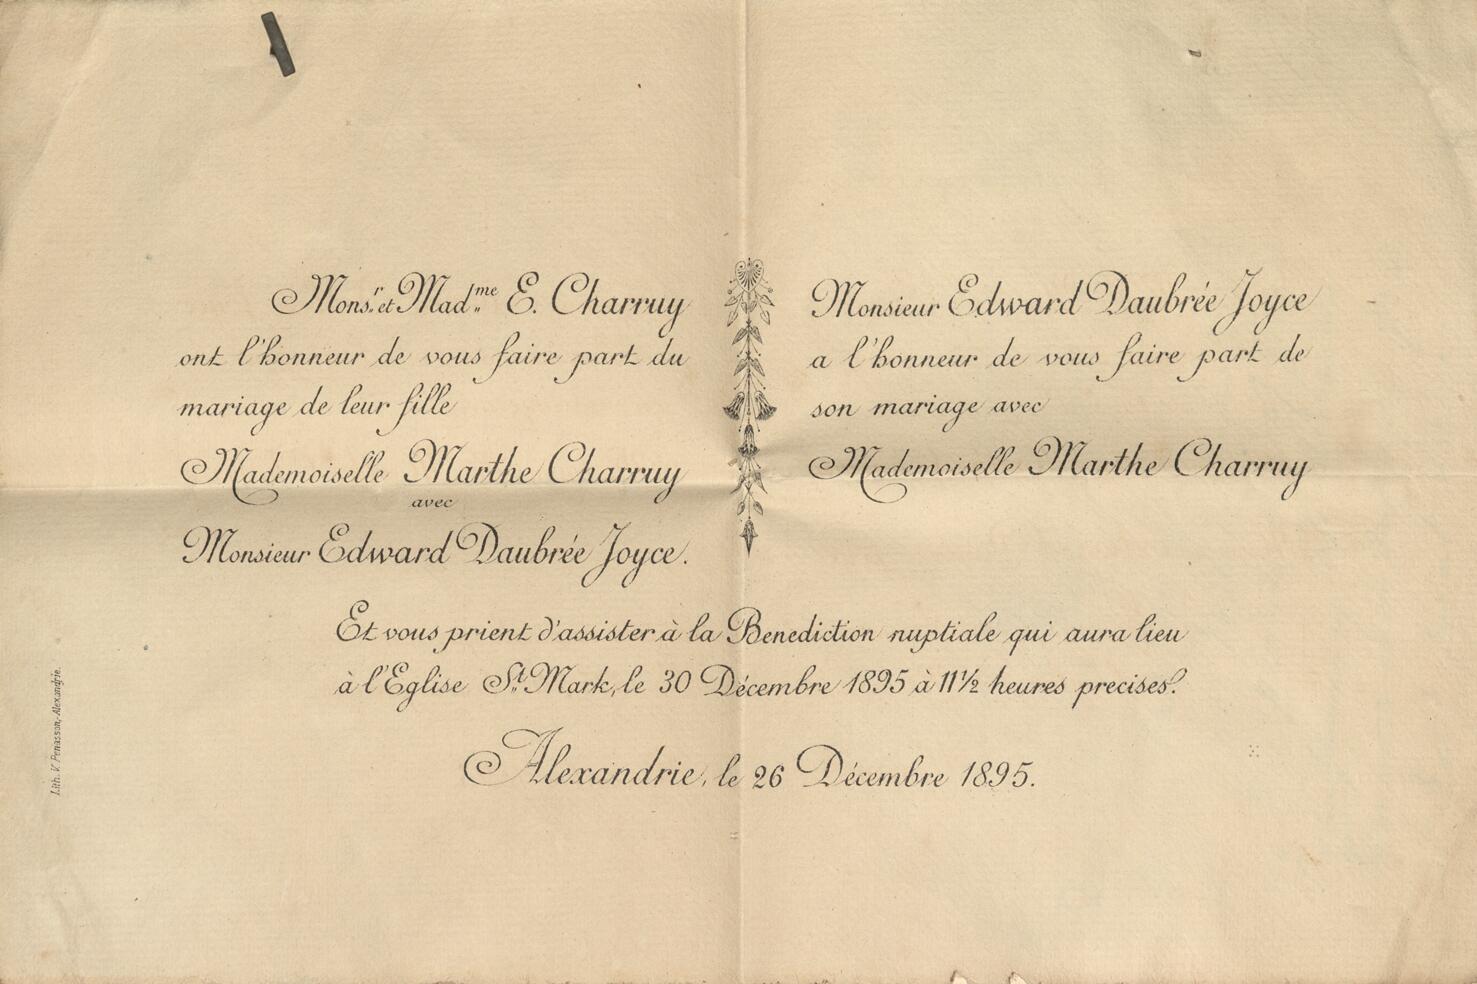 Monsr. et Madme. E. Charruy
ont l'honneur de vous faire part du
mariage de leur fille
Mademoiselle Marthe Charruy
avec
Monsieur Edward Daubrée Joyce.
Monsieur Edward Daubrée Joyce
a l'honneur de vous faire part de
son mariage avec
Mademoiselle Marthe Charruy
Et vous prient d'assister à la Benediction nuptiale qui aura lieu
à l'Eglise St. Mark, le 30 Décembre 1895 à 11½ heures precises.
Alexandrie, le 26 Décembre 1895.
Lith. V. Penasson, Alexandrie.